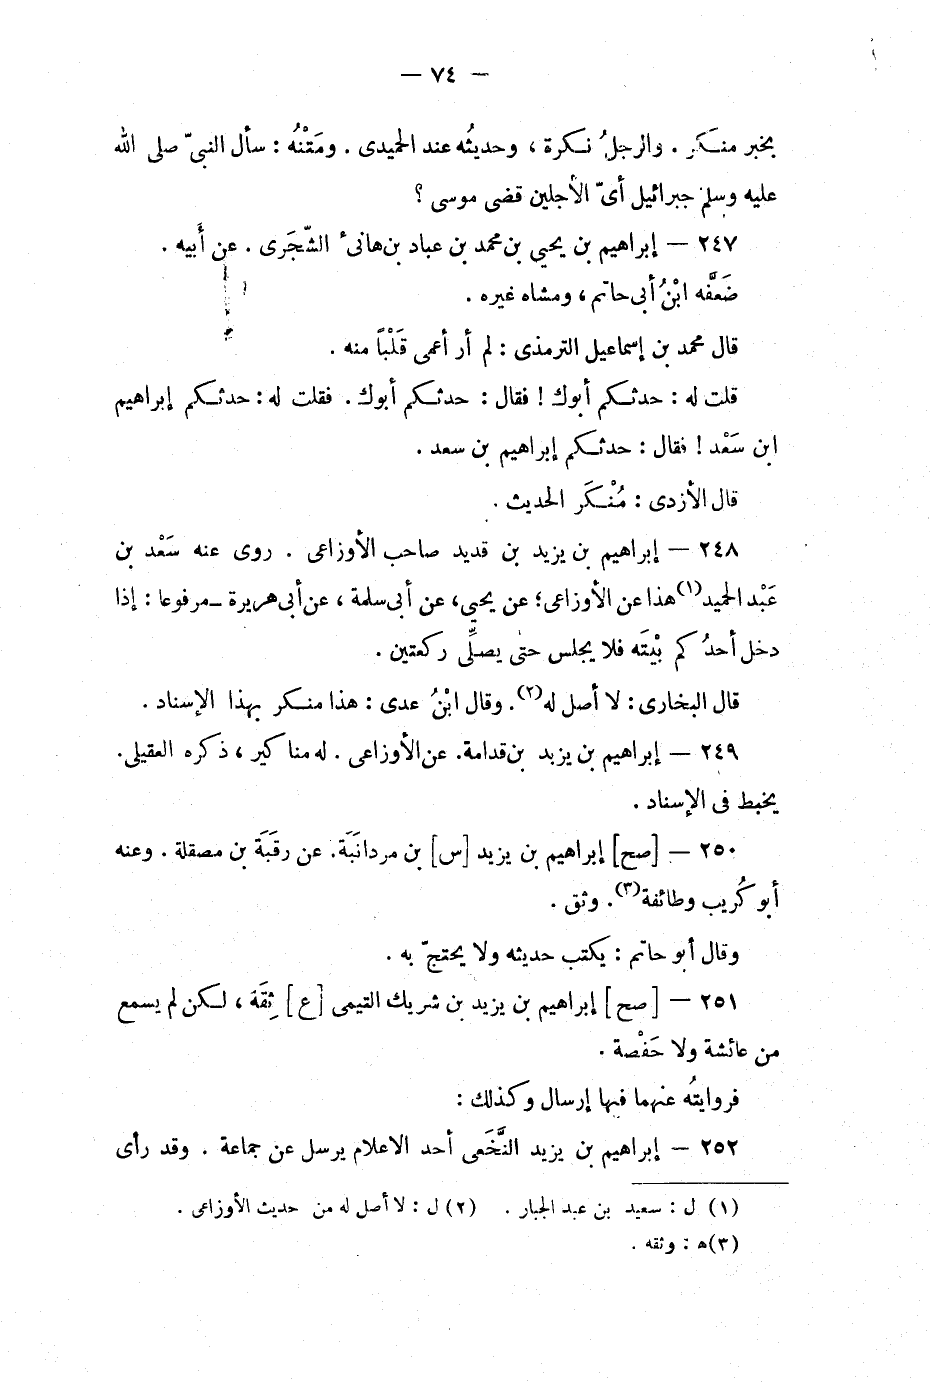 — ٧٤ —
بخبر منكر . والرجلُ نكرة ، وحديثُه عند الحميدى . ومَتْنُه : سأل النبيّ صلى الله
عليه وسلم جبرائيل أىّ الأجلين قضى موسى ؟
٢٤٧ — إبراهيم بن يحيي بن محمد بن عباد بن هانىء الشّجَرى . عن أَبيه .
ضَعَّفه ابْنُ أبى حاتم ، ومشاه غيره .
قال محمد بن إسماعيل الترمذى : لم أر أعمى قَلْبًا منه .
قلت له : حدثكم أبوك ! فقال : حدثكم أبوك . فقلت له : حدثكم إبراهيم
ابن سَعْد ! فقال : حدثكم إبراهيم بن سعد .
قال الأزدى : مُنْكَر الحديث .
٢٤٨ — إبراهيم بن يزيد بن قديد صاحب الأوزاعى . روى عنه سَعْد بن
عَبْد الحميد(١) هذا عن الأوزاعى؛ عن يحيي، عن أبى سلمة ، عن أبى هريرة ــ مرفوعا : إذا
دخل أحدُكم بيْتَه فلا يجلس حتى يصلِّى ركعتين .
قال البخارى : لا أصل له(٢). وقال ابْنُ عدى : هذا منكر بهذا الإسناد .
٢٤٩ — إبراهيم بن يزيد بن قدامة. عن الأوزاعى . له مناكير ، ذكره العقيلى.
يخبط فى الإسناد .
٢٥٠ — [صح] إبراهيم بن يزيد [س] بن مردانَبَة. عن رقَبَة بن مصقلة . وعنه
أبو كُريب وطائفة(٣). وثق .
وقال أبو حاتم : يكتب حديثه ولا يحتجّ به .
٢٥١ — [صح] إبراهيم بن يزيد بن شريك التيمى [ع] ثِقَة ، لكن لم يسمع
من عائشة ولا حَفْصة .
فروايتُه عنهما فيها إرسال وكذلك :
٢٥٢ — إبراهيم بن يزيد النَّخَعى أحد الاعلام يرسل عن جماعة . وقد رأى
(١) ل : سعيد بن عبد الجبار . (٢) ل : لا أصل له من حديث الأوزاعى .
(٣) ه : وثقه .